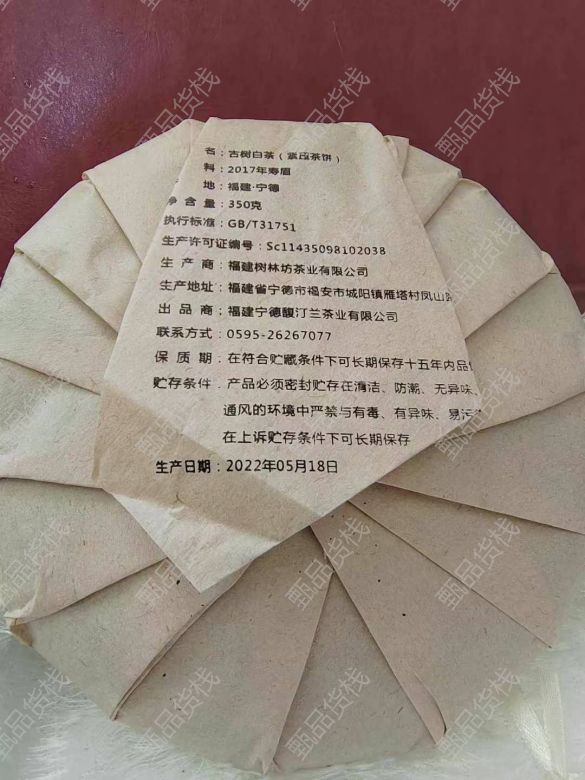 名：古树白茶（紧压茶饼）
料：2017年寿眉
地：福建·宁德
净含量：350克
执行标准：GB/T31751
生产许可证编号：Sc11435098102038
生产商：福建树林坊茶业有限公司
生产地址：福建省宁德市福安市城阳镇雁塔村凤山
出品商：福建宁德馥汀兰茶业有限公司
联系方式：0595-26267077
保质期：在符合贮藏条件下可长期保存十五年内品
贮存条件．产品必须密封贮存在清洁、防潮、无异味、
通风的环境中严禁与有毒、有异味、易污
在上诉贮存条件下可长期保存
生产日期：2022年05月18日
甄品货栈